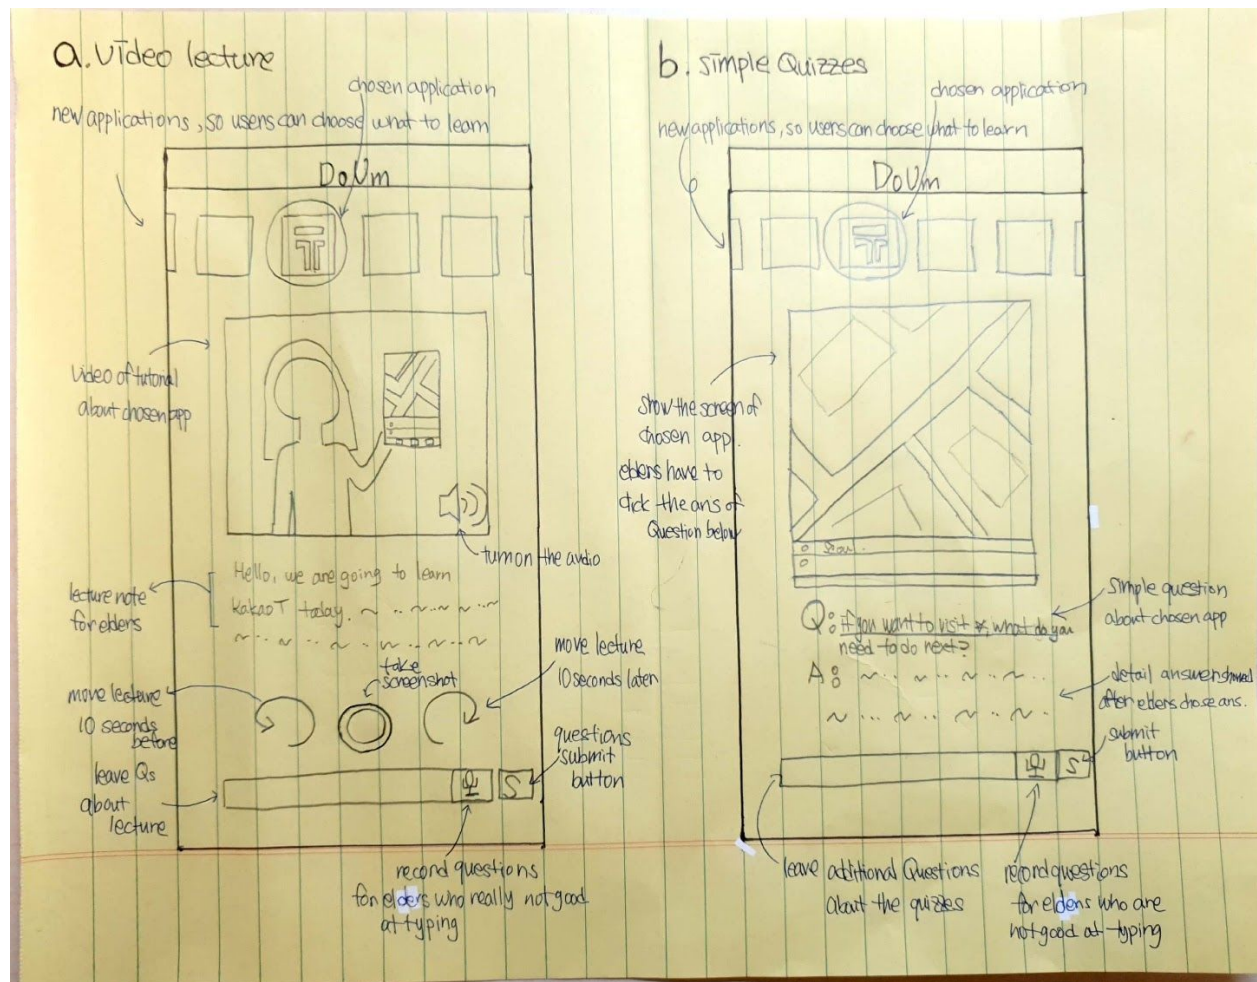 a. Video lecture
chosen application
new applications, so users can choose what to learn
DoUm
T
Video of tutorial
about chosen app
turn on the audio
lecture note
for elders
Hello, we are going to learn
kakaoT today.
take
screenshot
move lecture
10 seconds
before
move lecture
10 seconds later
leave Qs
about
lecture
S
questions
submit
button
record questions
for elders who really not good
at typing
b. simple Quizzes
chosen application
new applications, so users can choose what to learn
DoUm
T
show the screen of
chosen app.
elders have to
click the ans of
Question below
Q: if you want to visit *, what do you
need to do next?
A:
simple question
about chosen app
detail answer showed
after elders chose ans.
S
submit
button
leave additional Questions
about the quizzes
record questions
for elders who are
not good at typing